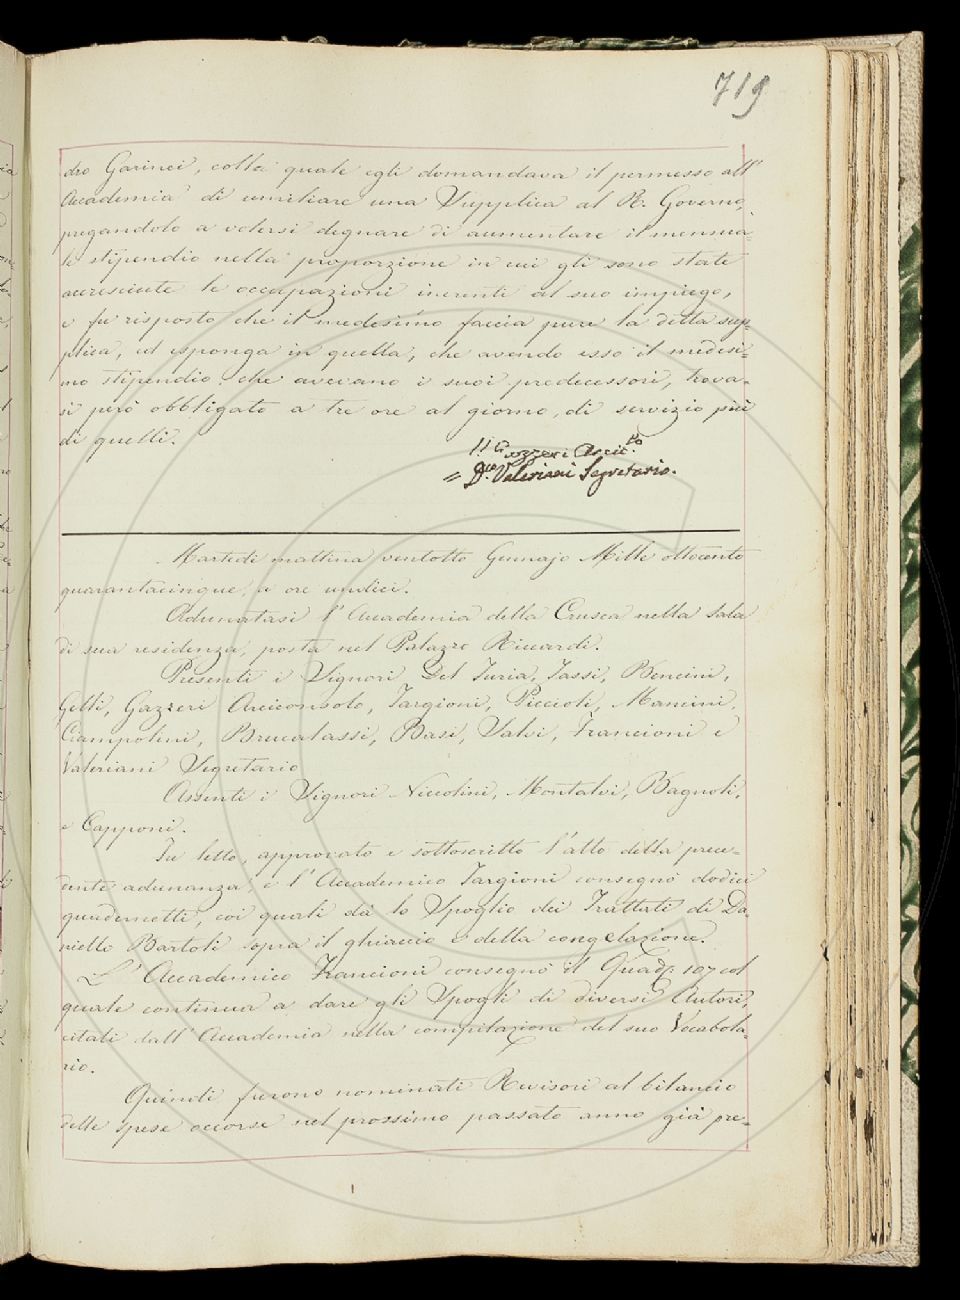 719
dro Garinei, colla quale egli domandava il permesso all'
Accademia di umiliare una Supplica al R. Governo,
pregandolo a volersi degnare di aumentare il mensua-
le stipendio nella proporzione in cui gli sono state
accresciute le occupazioni inerenti al suo impiego,
e fu risposto che il medesimo faccia pure la detta sup-
plica, ed esponga in quella, che avendo esso il medesi-
mo stipendio che avevano i suoi predecessori, trova-
si però obbligato a tre ore al giorno, di servizio più
di quelli.
Gazzeri Arcic.lo
= D.re Valeriani Segretario.
Martedì mattina ventotto Gennajo Mille ottocento
quarantacinque, a ore undici.
Adunatasi l'Accademia della Crusca nella Sala
di sua residenza, posta nel Palazzo Riccardi.
Presenti i Signori Del Furia, Tassi, Bencini,
Gelli, Gazzeri Arciconsolo, Targioni, Piccioli, Mancini,
Ciampolini, Brucalassi, Basi, Salvi, Francioni e
Valeriani Segretario
Assenti i Signori Niccolini, Montalvi, Bagnoli,
e Capponi.
Fu letto, approvato e sottoscritto l'atto della prece-
dente adunanza, e l'Accademico Targioni consegnò dodici
quadernetti, coi quali dà lo Spoglio dei Trattati di Da-
niello Bartoli sopra il ghiaccio e della congelazione.
L'Accademico Francioni consegnò il Quad.o 107 col
quale continua a dare gli Spogli di diversi Autori,
citati dall'Accademia nella compilazione del suo Vocabola-
rio.
Quindi furono nominati Revisori al bilancio
delle spese occorse nel prossimo passato anno già pre-